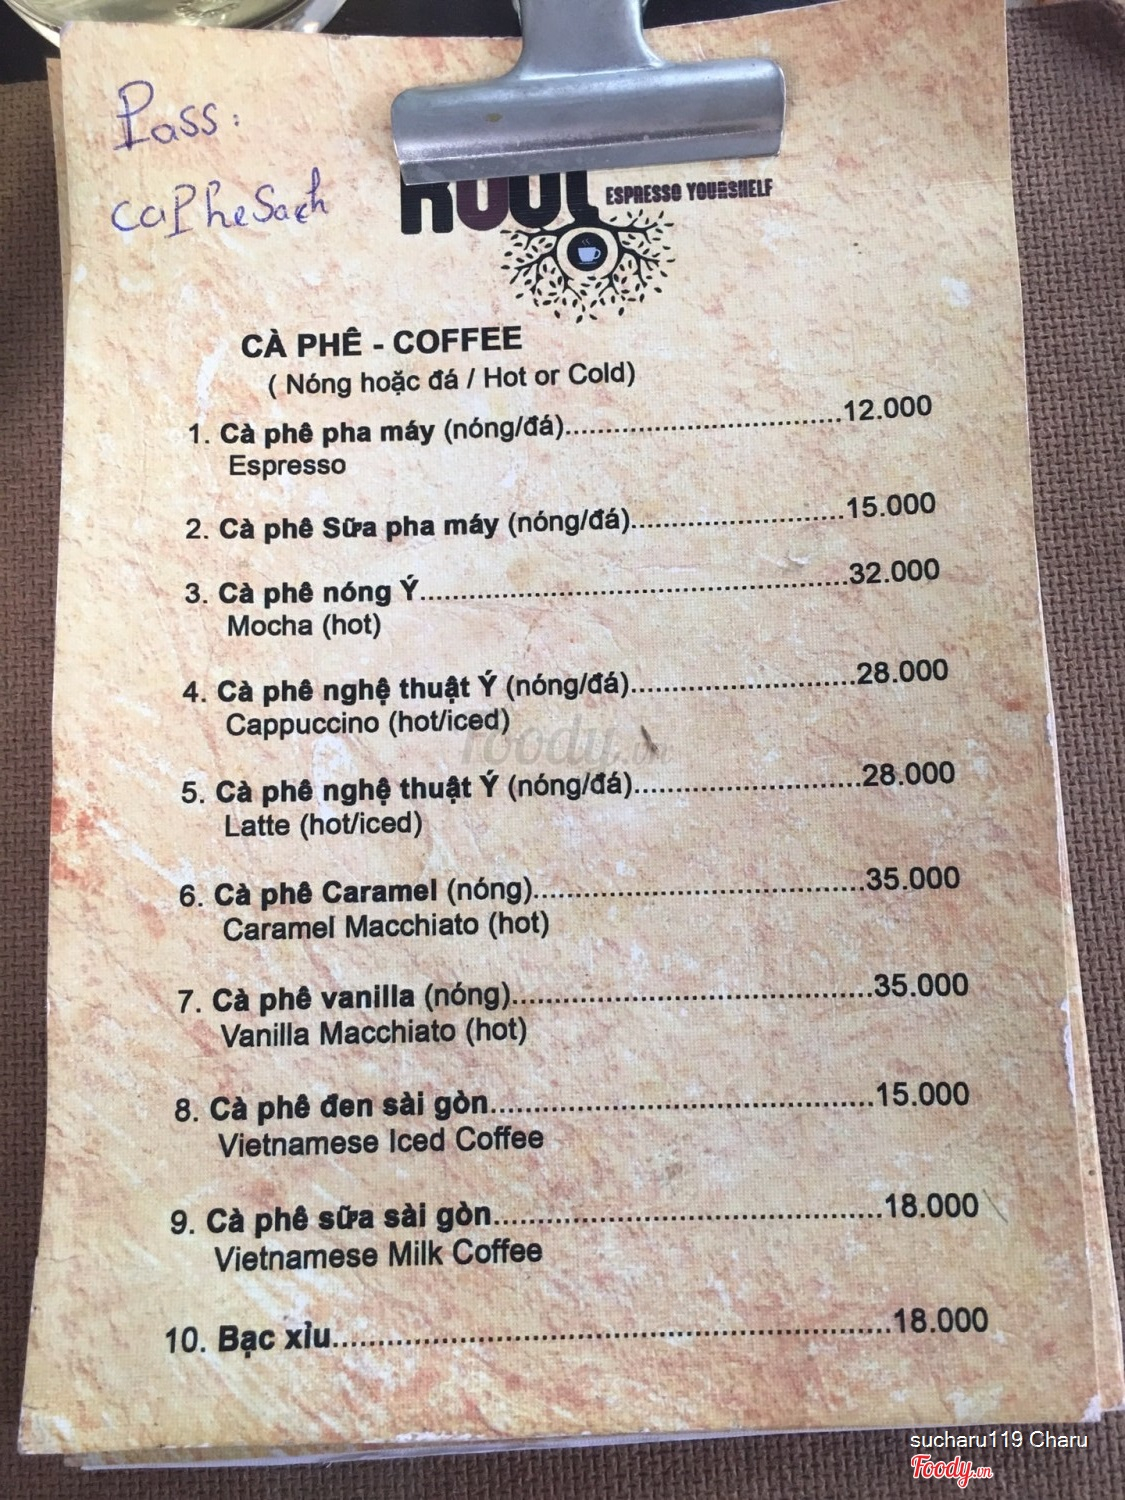 Pass:
caPheSach
ROOT
ESPRESSO YOURSHELF
CÀ PHÊ - COFFEE
( Nóng hoặc đá / Hot or Cold)
1. Cà phê pha máy (nóng/đá)..............................12.000
Espresso
2. Cà phê Sữa pha máy (nóng/đá)........................15.000
3. Cà phê nóng Ý................................................32.000
Mocha (hot)
4. Cà phê nghệ thuật Ý (nóng/đá)........................28.000
Cappuccino (hot/iced)
Foody.vn
5. Cà phê nghệ thuật Ý (nóng/đá)........................28.000
Latte (hot/iced)
6. Cà phê Caramel (nóng)....................................35.000
Caramel Macchiato (hot)
7. Cà phê vanilla (nóng).......................................35.000
Vanilla Macchiato (hot)
8. Cà phê đen sài gòn..........................................15.000
Vietnamese Iced Coffee
9. Cà phê sữa sài gòn..........................................18.000
Vietnamese Milk Coffee
10. Bạc xỉu............................................................18.000
sucharu119 Charu
Foody.vn